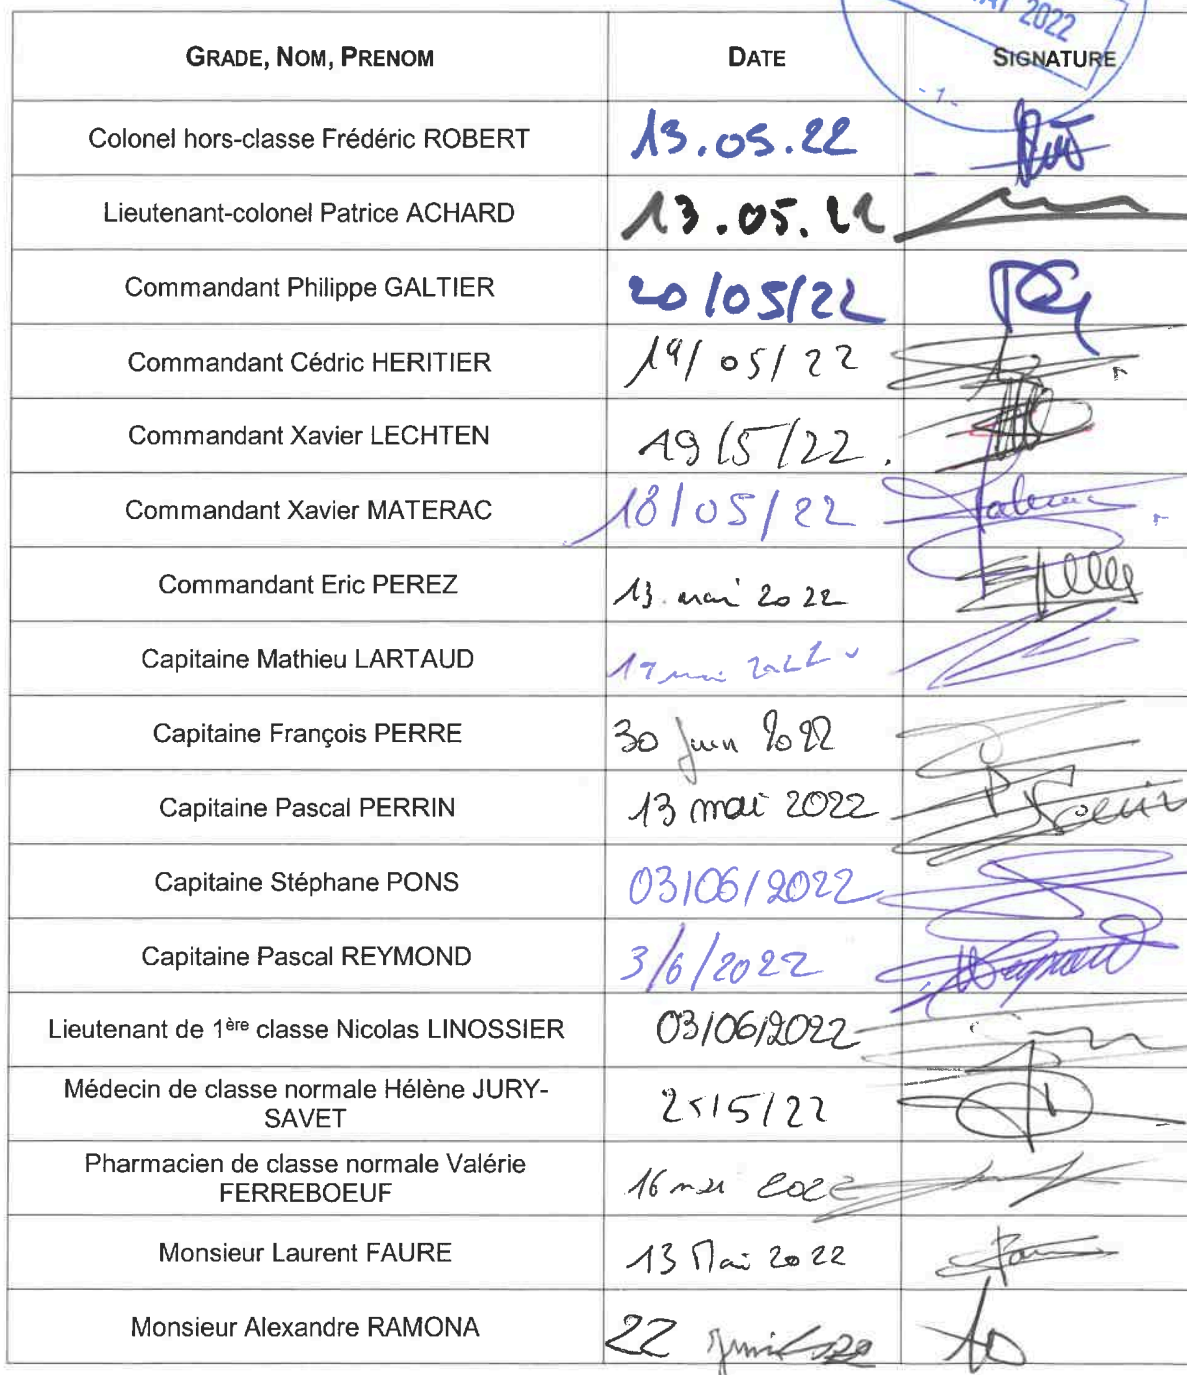 MAI 2022
GRADE, NOM, PRENOM DATE SIGNATURE
- 1 -
Colonel hors-classe Frédéric ROBERT 13.05.22
Lieutenant-colonel Patrice ACHARD 13.05.22
Commandant Philippe GALTIER 20/05/22
Commandant Cédric HERITIER 19/05/22
Commandant Xavier LECHTEN 19/5/22.
Commandant Xavier MATERAC 18/05/22
Commandant Eric PEREZ 13 mai 2022
Capitaine Mathieu LARTAUD 17 mai 2022
Capitaine François PERRE 30 Juin 2022
Capitaine Pascal PERRIN 13 mai 2022
Capitaine Stéphane PONS 03/06/2022
Capitaine Pascal REYMOND 3/6/2022
Lieutenant de 1ère classe Nicolas LINOSSIER 03/06/2022
Médecin de classe normale Hélène JURY-
SAVET 25/5/22
Pharmacien de classe normale Valérie
FERREBOEUF 16 mai 2022
Monsieur Laurent FAURE 13 Mai 2022
Monsieur Alexandre RAMONA 22